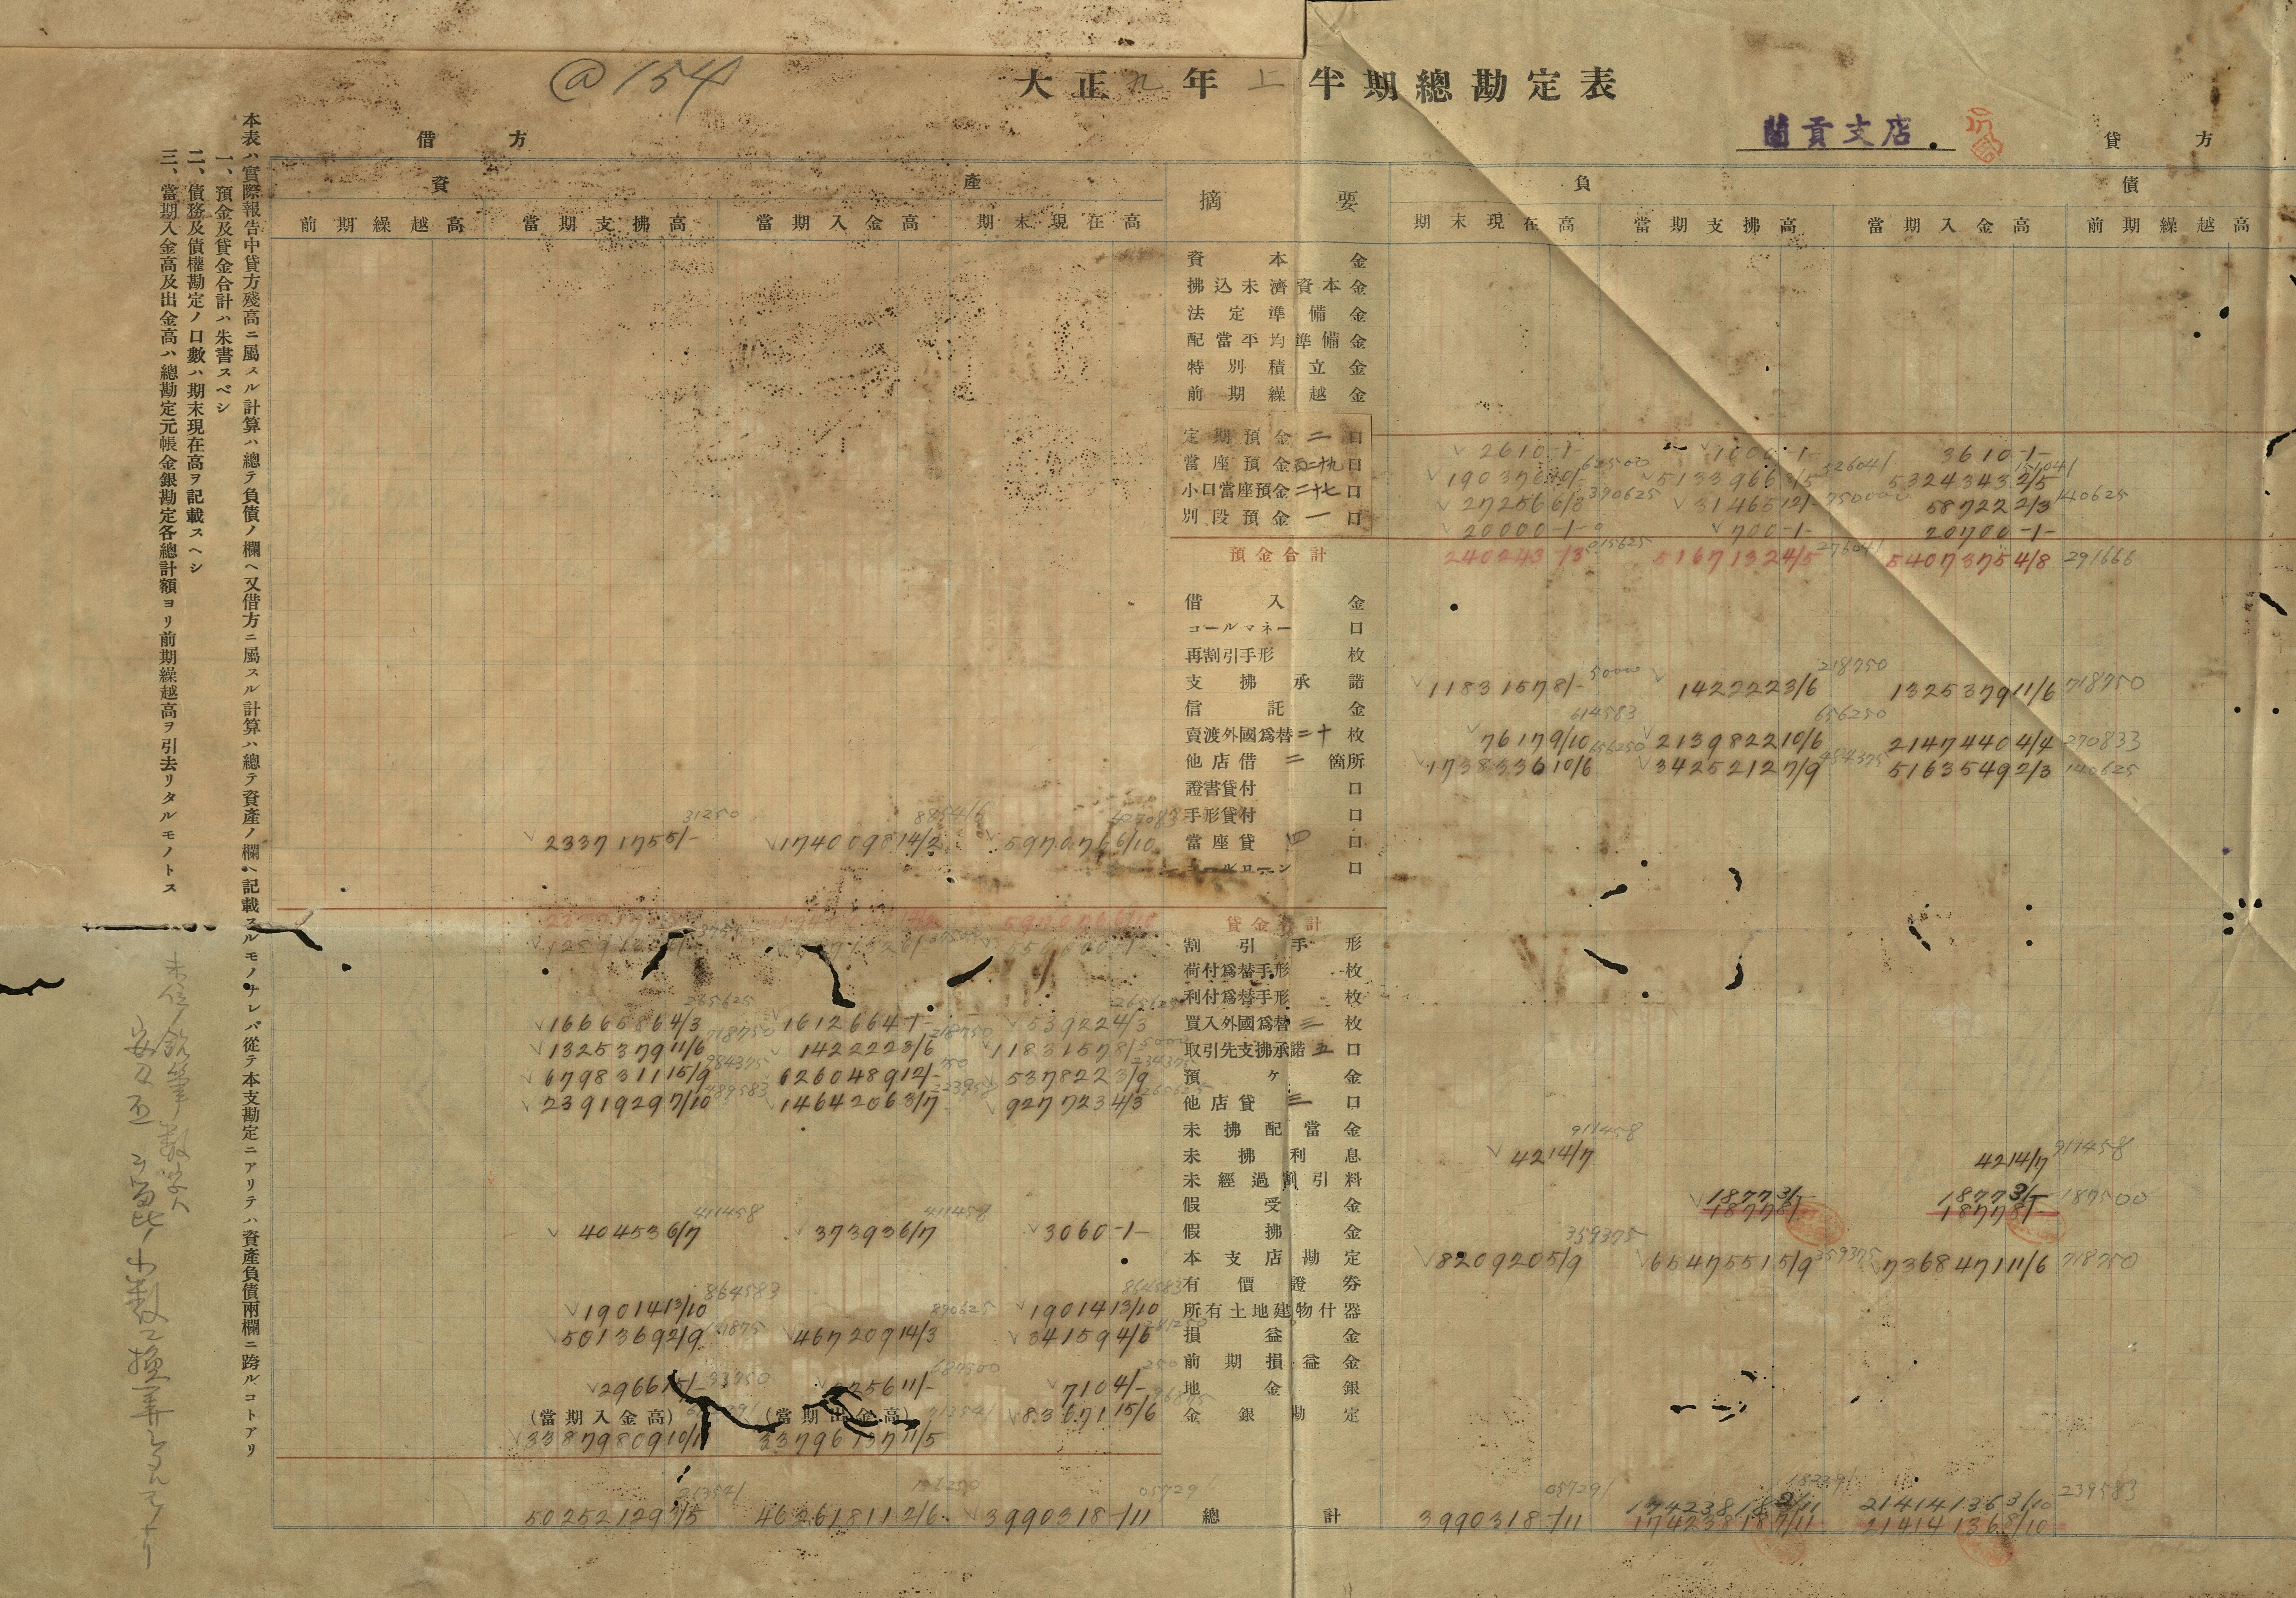 @154
大正九年上半期總勘定表
蘭貢支店
借方
貸方
資產
摘要
負債
前期繰越高 當期支拂高 當期入金高 期末現在高
期末現在高 當期支拂高 當期入金高 前期繰越高
資本金
拂込未濟資本金
法定準備金
配當平均準備金
特別積立金
前期繰越金
定期預金二口 2610-1- 1000-1- 3610-1-
當座預金百二十九口 5324343 2/5
小口當座預金二十七口 27256 6/3 390625 31465 12/- 750000 58722 2/3 140625
別段預金一口 20000-1- 700-1- 20700-1-
預金合計 240243-/3 015625 5167132 4/5 276041 5407375 4/8 291666
借入金
コールマネー口
再割引手形枚
支拂承諾 1183157 8/- 50000 142222 3/6 218750 1325379 11/6 718750
信託金
賣渡外國爲替二十枚 7617 9/10 614583 2139822 10/6 656250 2147440 4/4 270833
他店借二箇所 1738336 10/6 656250 3425212 7/9 484375 5163549 2/3 140625
證書貸付口
手形貸付口
2337175 5/- 31250 1740098 14/2 597076 6/10 當座貸四口
コールローン口
597076 6/10 貸金合計
割引手形
荷付爲替手形枚
利付爲替手形枚
1666586 4/3 265625 1612664-1- 53922 4/3 265625 買入外國爲替三枚
1325379 11/6 718750 142222 3/6 218750 1183157 8/- 50000 取引先支拂承諾五口
6798311 15/9 984375 6260489 12/- 750 537822 3/9 234375 預ケ金
2391929 7/10 489583 1464206 3/7 927723 4/3 265625 他店貸三口
未拂配當金
未拂利息 42 14/7 911458 42 14/7 911458
未經過割引料
假受金 1877 3/- 1877 3/- 187500
1877 8/- 1877 8/-
40453 6/7 411458 37393 6/7 411458 3060-1- 假拂金
本支店勘定 820920 5/9 359375 6547551 5/9 359375 7368471 11/6 718750
有價證券
19014 13/10 864583 19014 13/10 864583 所有土地建物什器
501369 2/9 467209 14/3 890625 34159 4/6 281250 損益金
前期損益金
2966 15/- 2256 11/- 687500 710 4/- 250 地金銀
(當期入金高) (當期出金高) 83671 15/6 金銀勘定
33879809 10/11 33796137 11/5
50252129 3/5 46261811 2/6 3990318-/11 總計 3990318-/11 05729 17423818 2/11 21414136 3/10 239583
17423818 7/11 21414136 8/10
本表ハ實際報告中貸方殘高ニ屬スル計算ハ總テ負債ノ欄ヘ又借方ニ屬スル計算ハ總テ資產ノ欄ヘ記載スルモノナレバ從テ本支勘定ニアリテハ資產負債兩欄ニ跨ルコトアリ
一、預金及貸金合計ハ朱書スベシ
二、債務及債權勘定ノ口數ハ期末現在高ヲ記載スヘシ
三、當期入金高及出金高ハ總勘定元帳金銀勘定各總計額ヨリ前期繰越高ヲ引去リタルモノトス